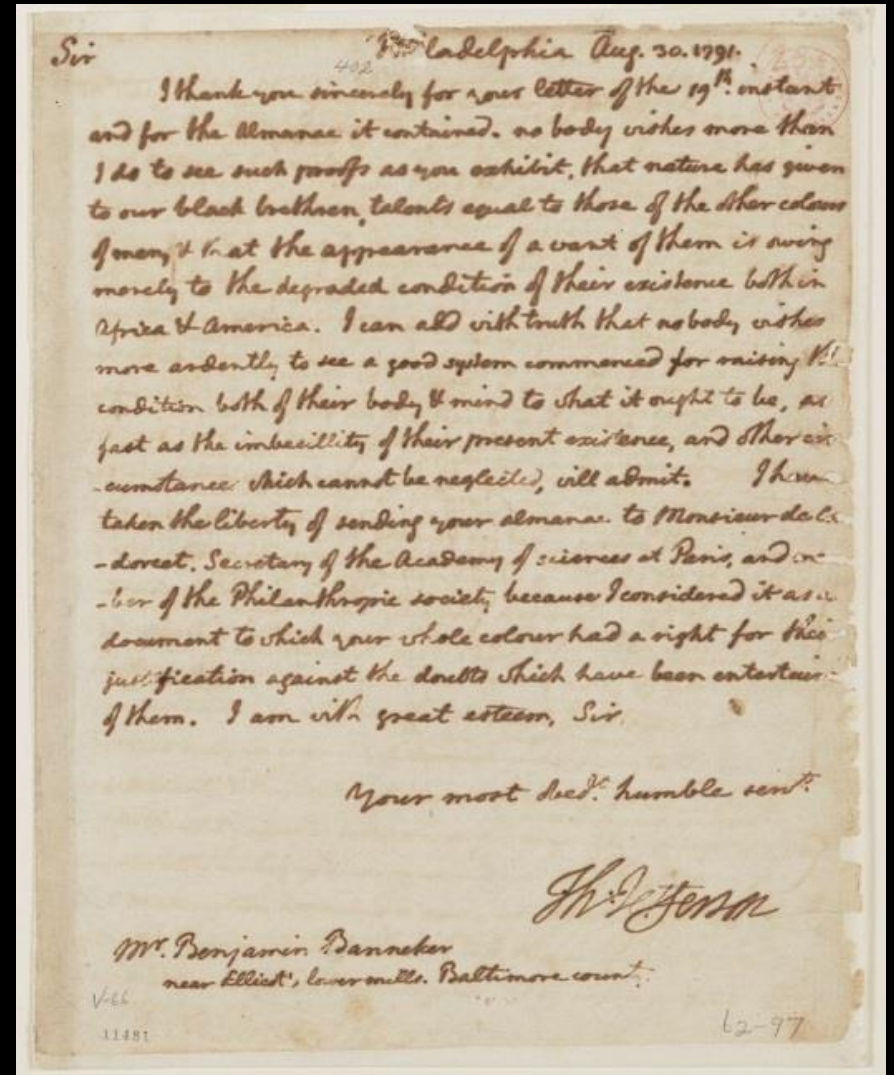 Sir Philadelphia Aug. 30. 1791.
402
I thank you sincerely for your letter of the 19th. instant
and for the Almanac it contained. no body wishes more than
I do to see such proofs as you exhibit, that nature has given
to our black brethren, talents equal to those of the other colours
of men, & that the appearance of a want of them is owing
merely to the degraded condition of their existence both in
Africa & America. I can add with truth that no body wishes
more ardently to see a good system commenced for raising the
condition both of their body & mind to what it ought to be, as
fast as the imbecillity of their present existence, and other cir
-cumstance which cannot be neglected, will admit. I have
taken the liberty of sending your almanac to Monsieur de
-dorcet, Secretary of the Academy of sciences at Paris, and
-ber of the Philanthropic society because I considered it as a
document to which your whole colour had a right for their
justification against the doubts which have been entertain
of them. I am with great esteem, Sir
Your most obedt. humble servt.
Th: Jefferson
Mr. Benjamin Banneker
near Ellicot's, lower mills. Baltimore county.
V-66
11481
62-97